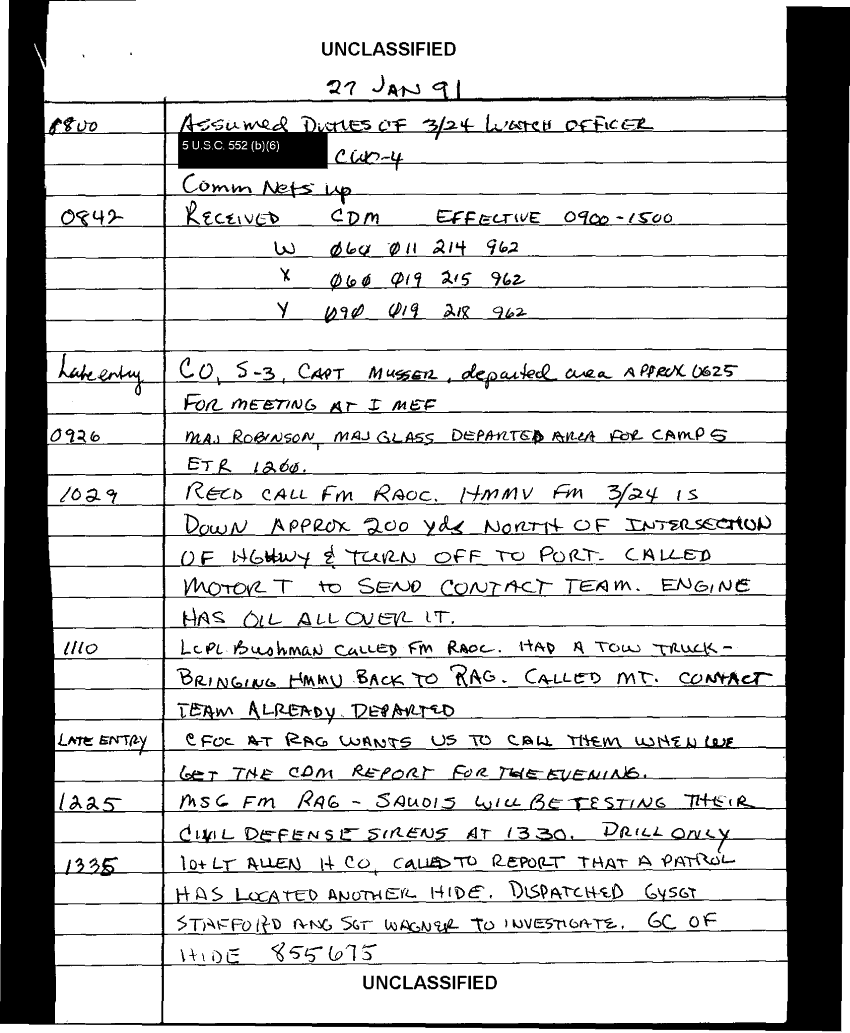 UNCLASSIFIED
27 JAN 91
0800 Assumed Duties of 3/24 Watch Officer
5 U.S.C. 552 (b)(6) CWO-4
Comm Nets up
0842 Received CDM EFFECTIVE 0900-1500
W 060 011 214 962
X 060 019 215 962
Y 090 019 218 962
Late entry CO, S-3, CAPT MUSSER, departed area APPROX 0625
FOR MEETING AT I MEF
0926 MAJ ROBINSON, MAJ GLASS DEPARTED AREA FOR CAMP 5
ETR 1200.
1029 RECD CALL FM RAOC. HMMV FM 3/24 IS
DOWN APPROX 200 yds NORTH OF INTERSECTION
OF HGHWY & TURN OFF TO PORT. CALLED
MOTOR T to SEND CONTACT TEAM. ENGINE
HAS OIL ALL OVER IT.
1110 LCPL Bushman CALLED FM RAOC. HAD A TOW TRUCK-
BRINGING HMMV BACK TO RAG. CALLED MT. CONTACT
TEAM ALREADY DEPARTED
LATE ENTRY CFOC AT RAG WANTS US TO CALL THEM WHEN WE
GET THE CDM REPORT FOR THE EVENING.
1225 MSG FM RAG - SAUDIS WILL BE TESTING THEIR
CIVIL DEFENSE SIRENS AT 1330. DRILL ONLY
1335 LT ALLEN H CO, CALLED TO REPORT THAT A PATROL
HAS LOCATED ANOTHER HIDE. DISPATCHED GYSGT
STAFFORD AND SGT WAGNER TO INVESTIGATE. GC OF
HIDE 855675
UNCLASSIFIED